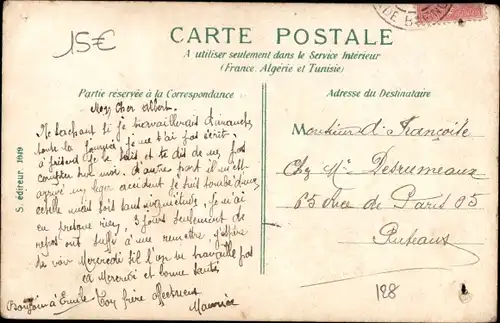 15€
CARTE POSTALE
A utiliser seulement dans le Service Intérieur
(France, Algérie et Tunisie)
Partie réservée à la Correspondance
Adresse du Destinataire
S. éditeur. 1949
Mon Cher Albert
Ne sachant si je travaillerais Dimanche
toute la journée je ne t'ai pas écrit.
à présent je le sais et te dis de ne pas
compter sur moi. D'autre part il m'est
arrivé un léger accident je suis tombé dans
mais sans
presque rien, 3 jours seulement de
repos ont suffi à me remettre. J'espère
te voir Mercredi si l'on ne travaille pas
à Mercredi et bonne santé
Bonjour à Emile Ton frère affectueux
Maurice
Monsieur A. Françoise
Chez Mr Desrumeaux
65 Rue de Paris 65
Puteaux
188